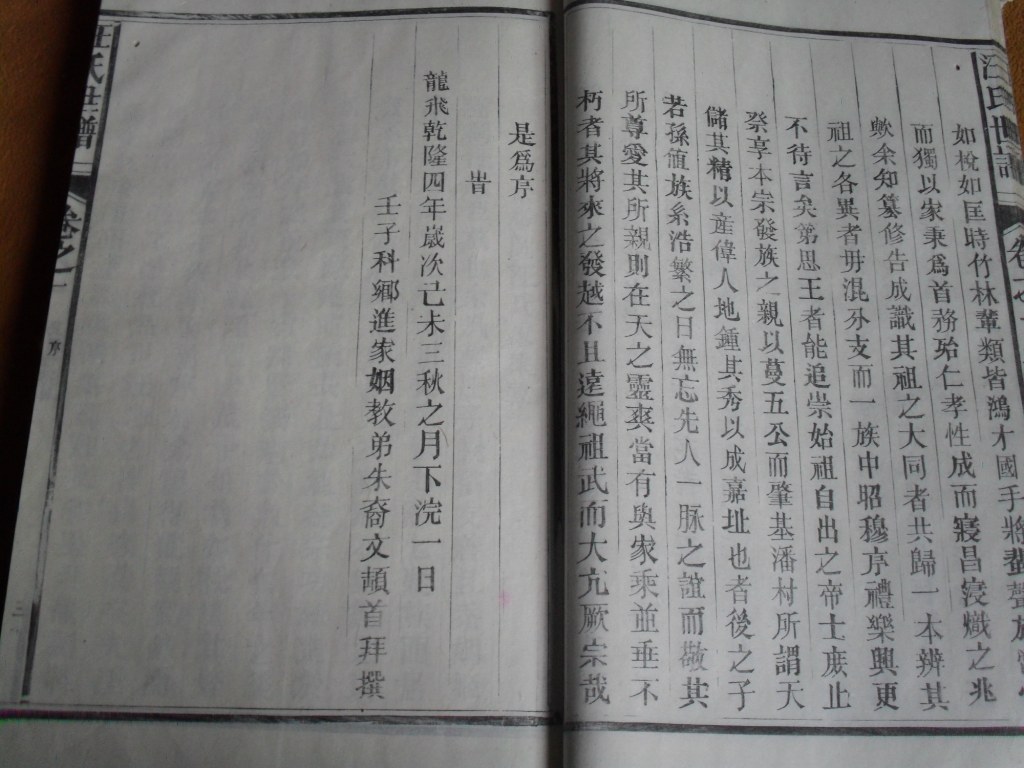 汪氏世譜
卷之一
如梲如匡時竹林輩類皆鴻才國手將
而獨以家乘爲首務殆仁孝性成而寢昌寖熾之兆
歟余知纂修告成識其祖之大同者共歸一本辨其
祖之各異者毋混外支而一族中昭穆序禮樂興更
不待言矣第思王者能追崇始祖自出之帝士庶止
祭享本宗發族之親以蔓五公而肇基潘村所謂天
儲其精以産偉人地鍾其秀以成嘉址也者後之子
若孫值族系浩繁之日無忘先人一脉之誼而敬其
所尊愛其所親則在天之靈爽當有與家乘並垂不
朽者其將來之發越不且遠繩祖武而大亢厥宗哉
是爲序
旹
龍飛乾隆四年歲次己未三秋之月下浣一日
壬子科鄉進家姻教弟朱裔文頓首拜撰
汪氏世譜
卷之一
序
三